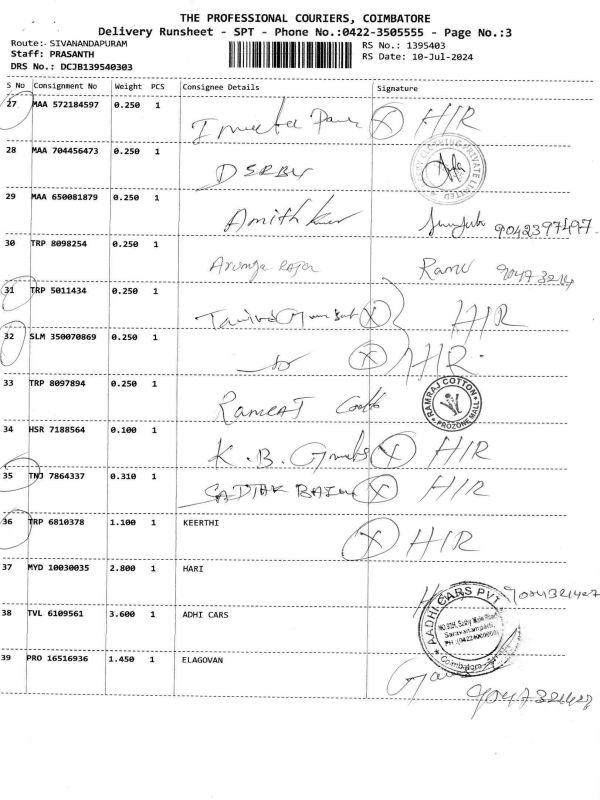 THE PROFESSIONAL COURIERS, COIMBATORE
Delivery Runsheet - SPT - Phone No.:0422-3505555 - Page No.:3
Route:- SIVANANDAPURAM RS No.: 1395403
Staff: PRASANTH RS Date: 10-Jul-2024
DRS No.: DCJB139540303
S No Consignment No Weight PCS Consignee Details Signature
27 MAA 572184597 0.250 1 HIR
28 MAA 704456473 0.250 1
29 MAA 650081879 0.250 1 Amith 9042397497
30 TRP 8098254 0.250 1 Ramu
31 TRP 5011434 0.250 1 HIR
32 SLM 350070869 0.250 1 do HIR
33 TRP 8097894 0.250 1 RAMRAJ COTTON PROZONE MALL
34 HSR 7188564 0.100 1 K. B. HIR
35 TNJ 7864337 0.310 1 HIR
36 TRP 6810378 1.100 1 KEERTHI HIR
37 MYD 10030035 2.800 1 HARI
38 TVL 6109561 3.600 1 ADHI CARS AADHI CARS PVT Saravanampatti, Coimbatore
39 PRO 16516936 1.450 1 ELAGOVAN